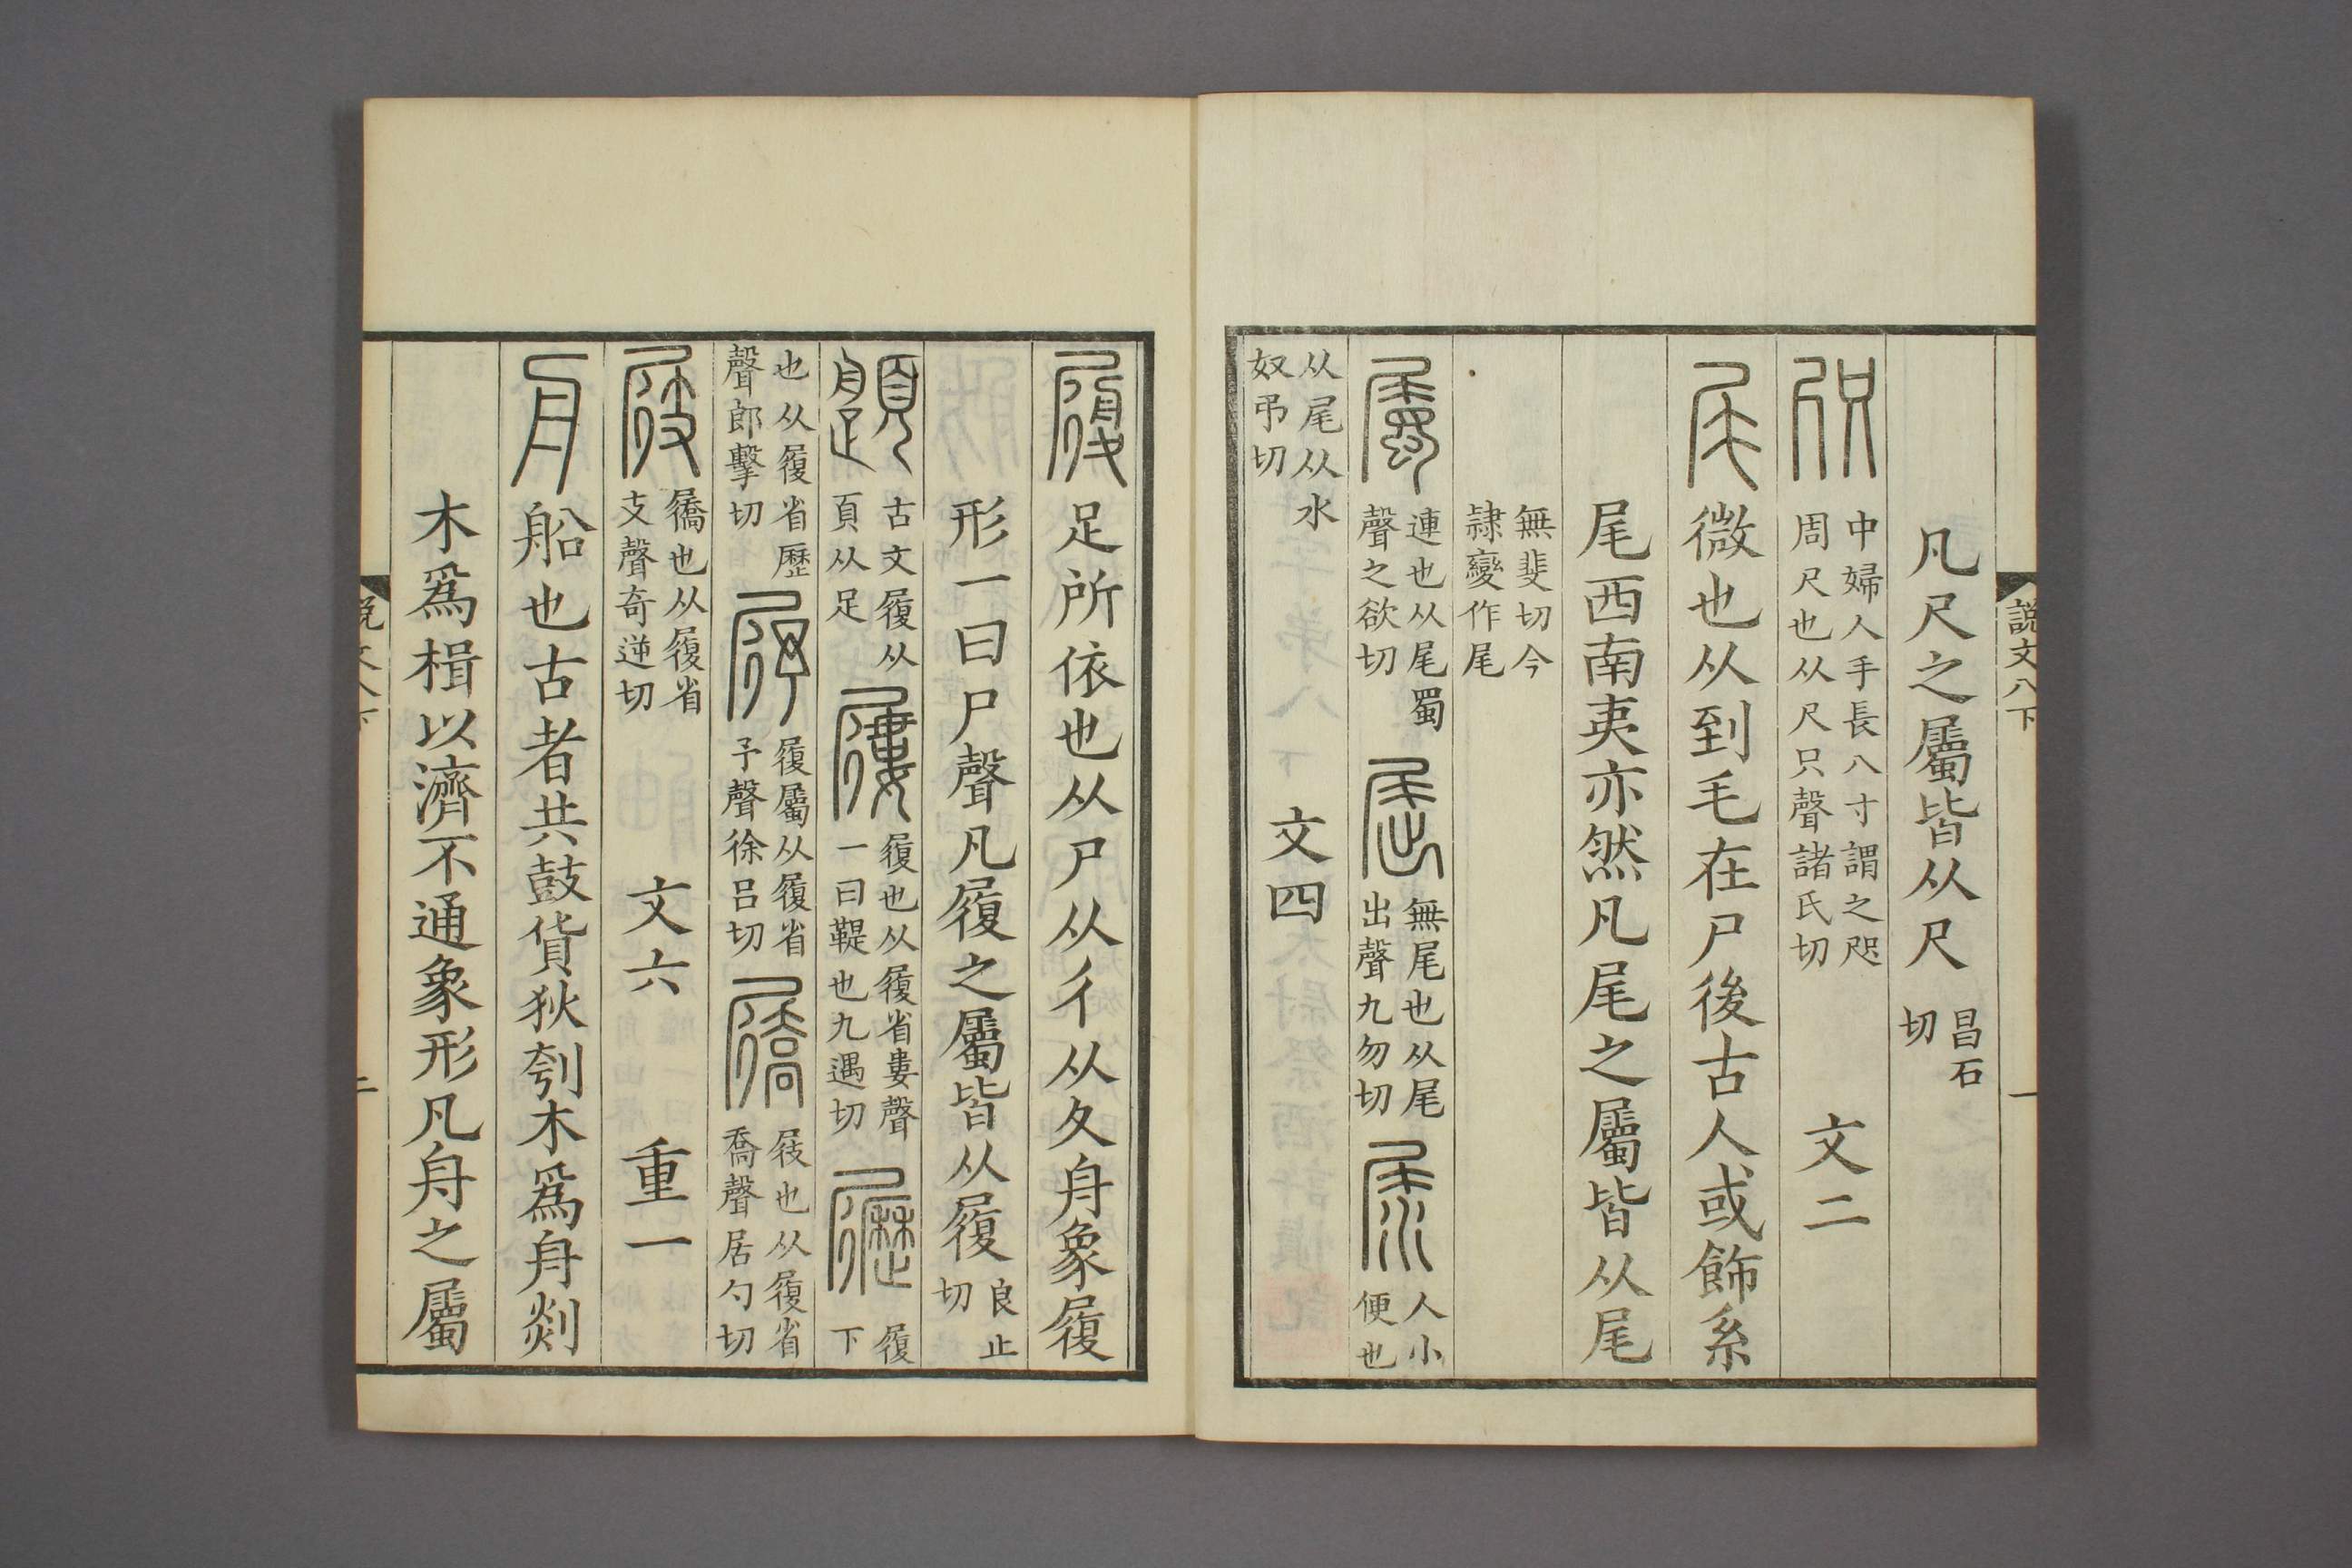 說文八下 一
凡尺之屬皆从尺昌石切
咫中婦人手長八寸謂之咫周尺也从尺只聲諸氏切 文二
尾微也从到毛在尸後古人或飾系
尾西南夷亦然凡尾之屬皆从尾
無斐切今隷變作尾
屬連也从尾蜀聲之欲切屈無尾也从尾出聲九勿切尿人小便也
从尾从水奴弔切 文四
履足所依也从尸从彳从夂舟象履
形一曰尸聲凡履之屬皆从履良止切
古文履从頁从足屨履也从履省婁聲一曰鞮也九遇切履下
也从履省歷聲郎擊切履屬从履省予聲徐呂切屩屐也从履省喬聲居勺切
屐屩也从履省支聲奇逆切 文六 重一
舟船也古者共鼓貨狄刳木爲舟剡
木爲楫以濟不通象形凡舟之屬
說文八下 二